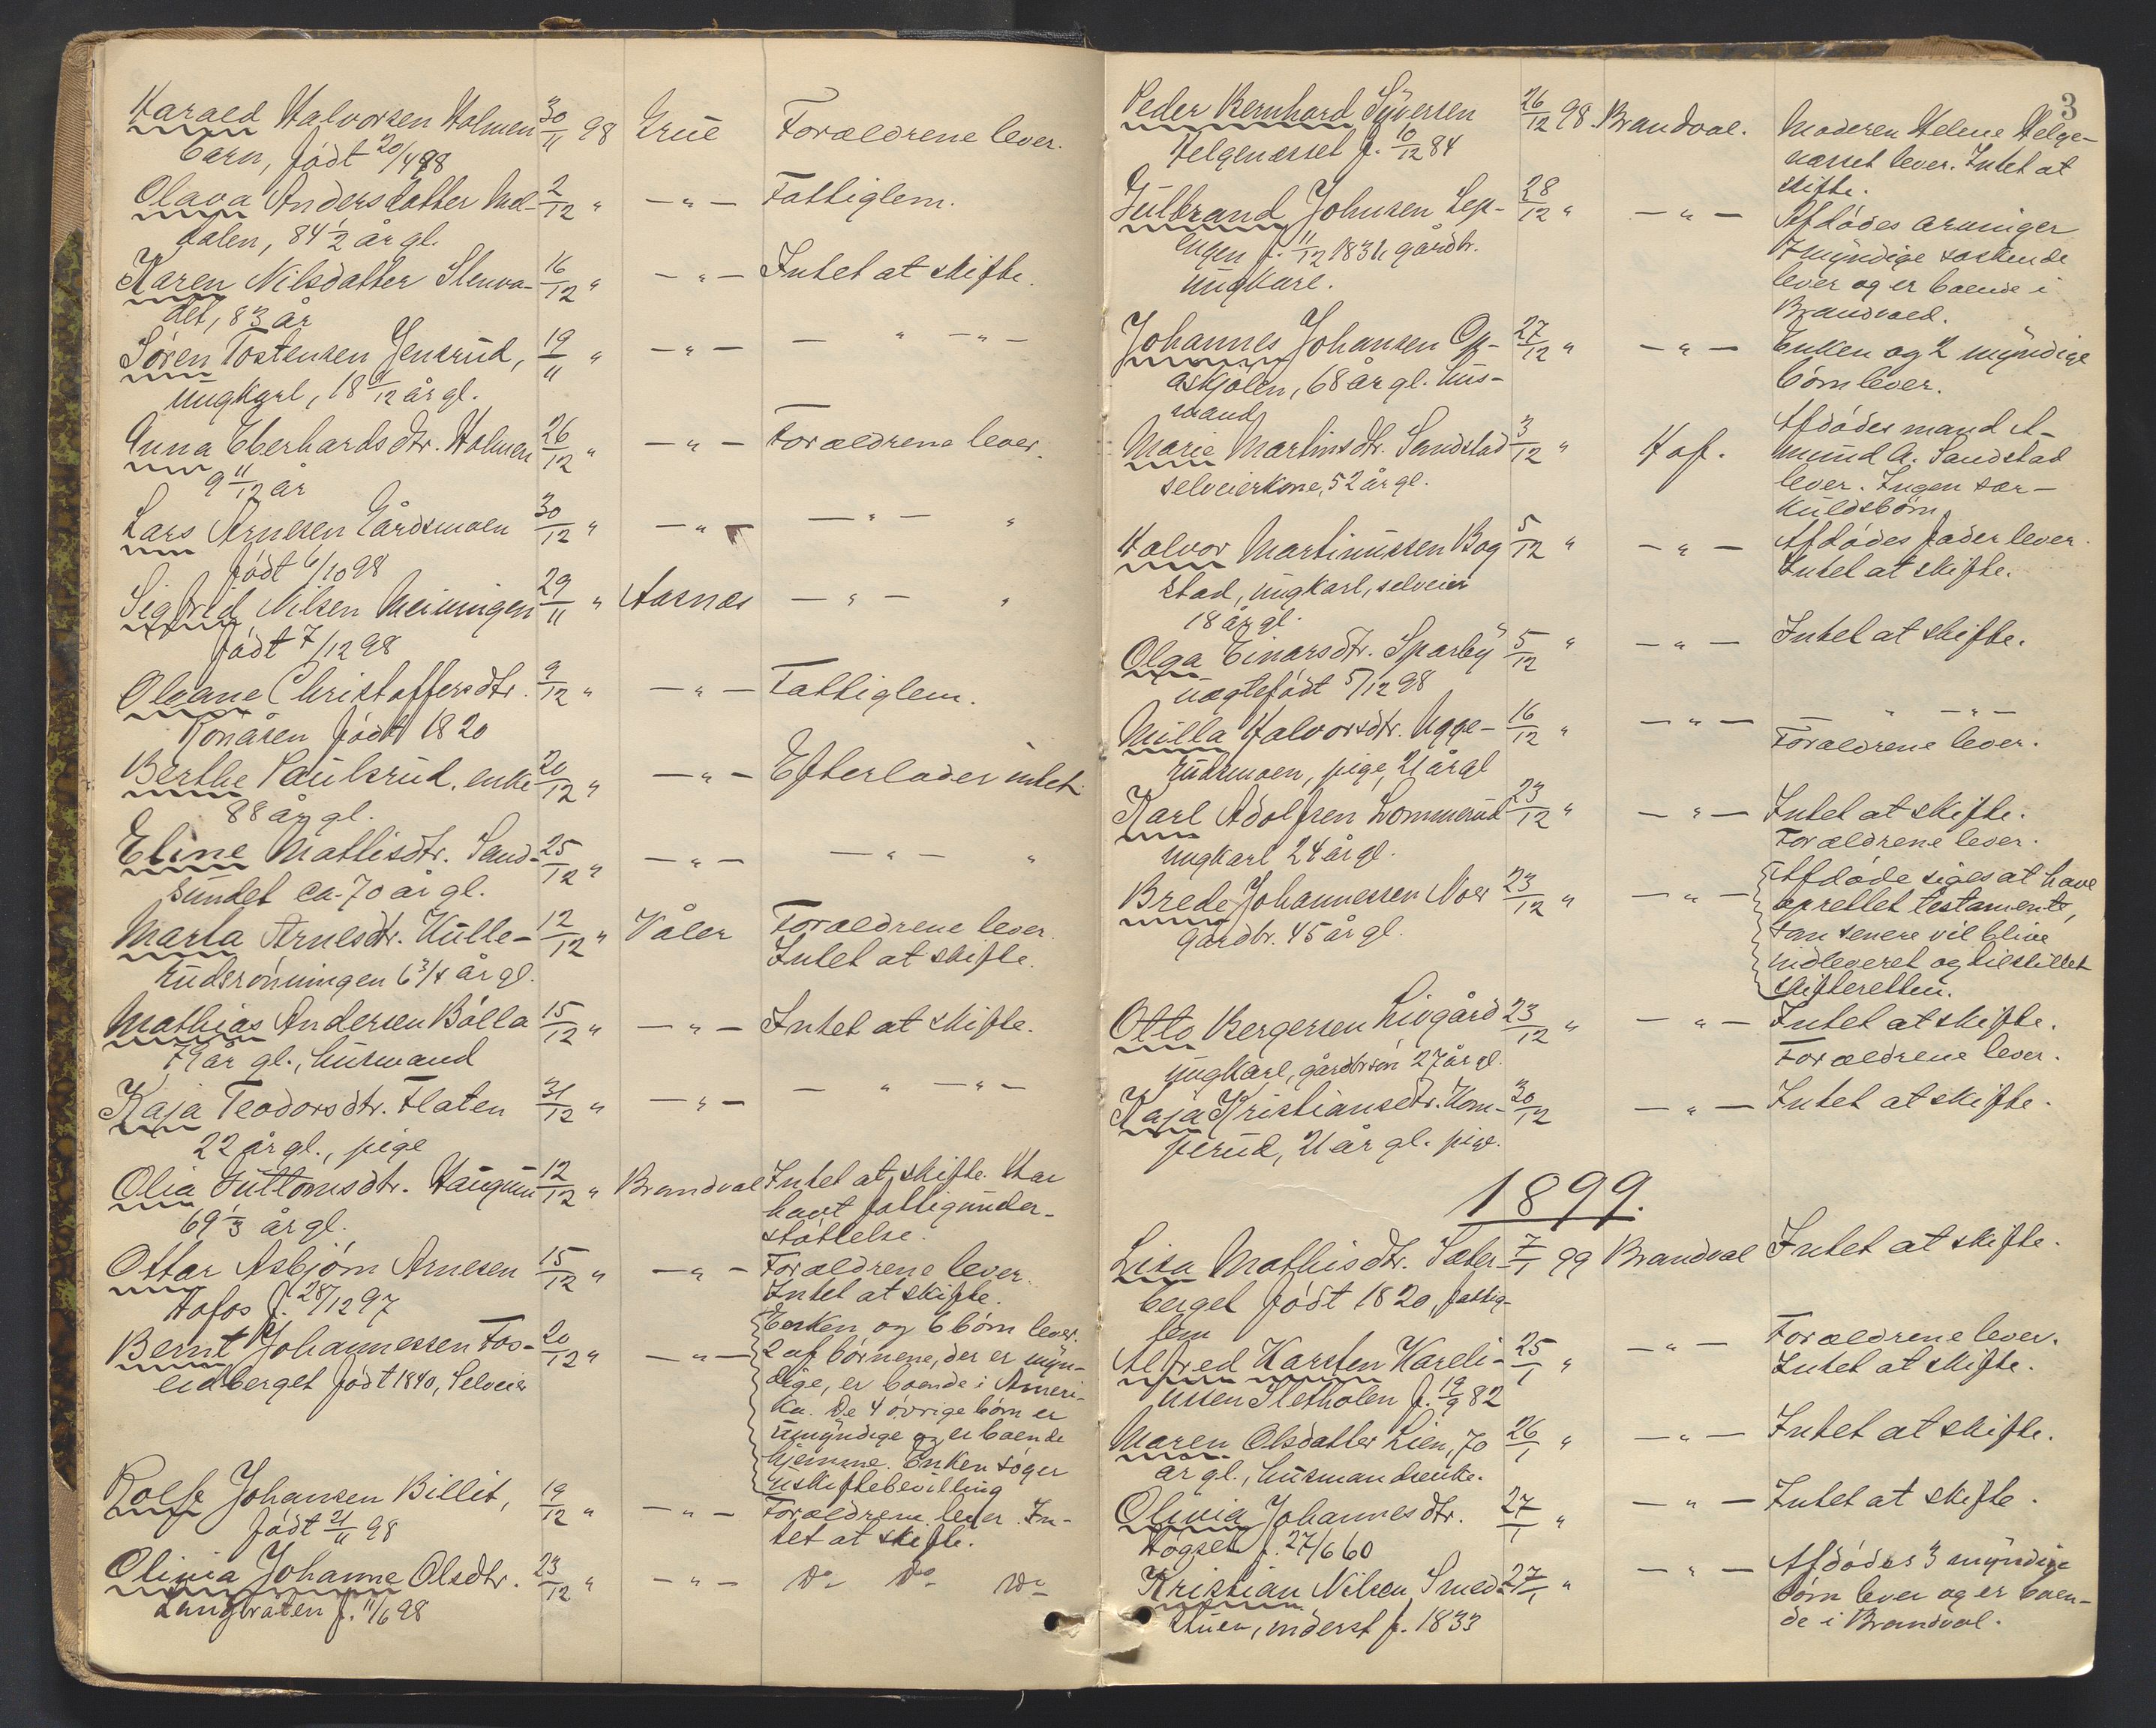 Harald Halvorsen Holmen 30/11 98 Grue Forældrene lever.
barn, födt 20/4 98
Olava Andersdatter Mel- 2/12 " — " — Fattiglem.
dalen, 84 1/2 år gl.
Karen Nilsdatter Stenva- 16/12 " — " — Intet at skifte.
det, 83 år
Søren Tostensen Jensrud, 19/11 " — " — — " — " —
ungkarl, 18 /12 år gl.
Anna Eberhardsdtr. Holmen 26/12 " — " — Forældrene lever.
9 11/12 år
Lars Arnesen Gårdsmoen 30/12 " — " — — " — "
födt 6/10 98
Sigfrid Nilsen Meiningen 29/11 " Aasnes — " — "
födt 7/12 98
Oleane Christoffersdtr. 9/12 " — " — Fattiglem.
Konåsen födt 1820
Berthe Paulsrud, enke 20/12 " — " — Efterlader intet.
88 år gl.
Eline Mathisdtr. Sand- 25/12 " — " — — " — "
sundet ca. 70 år gl.
Marta Arnesdtr. Kulle- 12/12 " Våler Forældrene lever.
rudsrönningen 6 3/4 år gl. Intet at skifte.
Mathias Andersen Bölla 15/12 " — " — Intet at skifte.
79 år gl., husmand
Kaja Teodorsdtr. Flaten 31/12 " — " — — " — " —
22 år gl., pige
Olia Guttomsdtr. Haugun 12/12 " Brandval Intet at skifte. Har
69 1/3 år gl. havt fattigunder-
stöttelse.
Ottar Asbjörn Arnesen 15/12 " — " — Forældrene lever.
Hofos f. 28/12 97 Intet at skifte.
Bernt Johannessen Fos- 20/12 " — " — Enken og 6 börn lever.
eidberget födt 1840, Selveier 2 af börnene, der er myn-
dige, er boende i Ameri-
ka. De 4 övrige börn er
umyndige og er boende
hjemme. Enken söger
uskiftebevilling
Rolf Johansen Billit, 19/12 " — " — Forældrene lever. In-
födt 21/11 98 tet at skifte.
Olivia Johanne Olsdtr. 23/12 " — " — Do Do Do
Langbråten f. 11/6 98
3
Peder Bernhard Syversen 26/12 98. Brandval. Moderen Helene Helge-
Helgenæsset f. 10/12 84 næsset lever. Intet at
skifte.
Gulbrand Johnsen Lep- 28/12 " — " — Afdödes arvinger
engen f. 11/12 1831, gårdbr. 7 myndige søskende
ungkarl. lever og er boende i
Brandvold.
Johannes Johansen Op- 27/12 " — " — Enken og 2 myndige
åskjölen, 68 år gl. hus- börn lever.
mand
Marie Martinsdtr. Sandstad 3/12 " Hof. Afdödes mand A-
selveierkone, 52 år gl. mund A. Sandstad
lever. Ingen sær-
kuldsbörn.
Halvor Martinussen Bog- 5/12 " — " — Afdödes fader lever.
stad, ungkarl, selveier Intet at skifte.
18 år gl.
Olga Einarsdtr. Sparby 5/12 " — " — Intet at skifte.
uægtefödt 5/12 98
Milla Halvorsdtr. Ugge- 16/12 " — " — — " — " —
rudsmoen, pige, 21 år gl Forældrene lever.
Karl Adolfsen Lommerud 23/12 " — " — Intet at skifte.
ungkarl 24 år gl. Forældrene lever.
Brede Johannessen Noer 23/12 " — " — Afdöde siges at have
gårdbr. 45 år gl. oprettet testamente,
som senere vil blive
indleveret og tilstillet
skifteretten.
Otto Bergersen Livgård 23/12 " — " — Intet at skifte.
ungkarl, gårdbrsön 27 år gl. Forældrene lever.
Kaja Kristiansdtr. Kom- 30/12 — " — Intet at skifte.
perud, 21 år gl. pige.
1899.
Lisa Mathisdtr. Sæter- 7/1 99 Brandval Intet at skifte.
berget födt 1820, fattig-
lem
Alfred Karsten Kareli- 25/1 " — " — Forældrene lever.
ussen Sletholen f. 19/9 82 Intet at skifte.
Maren Olsdatter Lien, 70 26/1 " — " — Intet at skifte.
år gl., husmandsenke.
Olivia Johannesdtr. 27/1 " — " — Intet at skifte.
Högset f. 27/6 60
Kristian Nilsen Smed- 27/1 " — " — Afdödes 3 myndige
stuen, inderst f. 1833 börn lever og er boen-
de i Brandval.